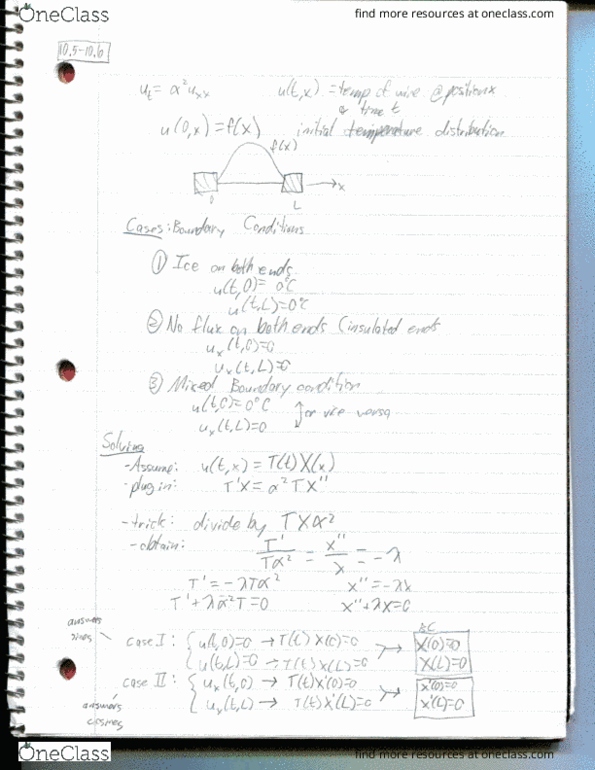 OneClass
find more resources at oneclass.com
10.5-10.6
u_t = α²u_xx    u(t,x) = temp of wire @ position x
& time t
u(0,x) = f(x)    initial temperature distribution
f(x)
0    L    x
Cases: Boundary Conditions
① Ice on both ends
u(t,0) = 0°C
u(t,L)=0°C
② No flux on both ends (insulated ends
u_x(t,0)=0
u_x(t,L)=0
③ Mixed Boundary condition
u(t,0)=0°C    or vice versa
u_x(t,L)=0
Solving
-Assume:    u(t,x) = T(t)X(x)
-plug in:    T'X = α²TX''
-trick: divide by TXα²
-obtain:    T'/Tα² = X''/X = -λ
T' = -λTα²    X'' = -λX
T' + λα²T=0    X''+λX=0
answers
sines    BC
case I: { u(t,0)=0 → T(t)X(0)=0    X(0)=0
u(t,L)=0 → T(t)X(L)=0    X(L)=0
case II: { u_x(t,0) → T(t)X'(0)=0    X'(0)=0
u_x(t,L) → T(t)X'(L)=0    X'(L)=0
answers
cosines
OneClass
find more resources at oneclass.com